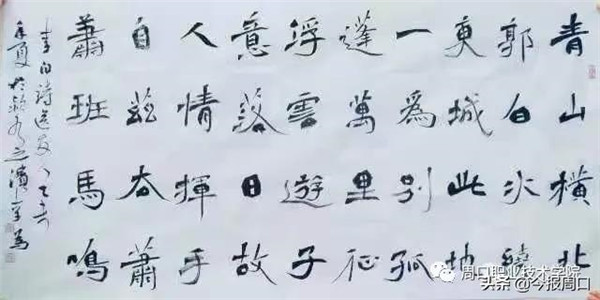 青山橫北
郭白水繞
東城此地
一爲别孤
蓬萬里征
浮雲遊子
意落日故
人情揮手
自茲去蕭
蕭班馬鳴
李白詩送友人
夏於之濱
周口职业技术学院
头条@今报周口